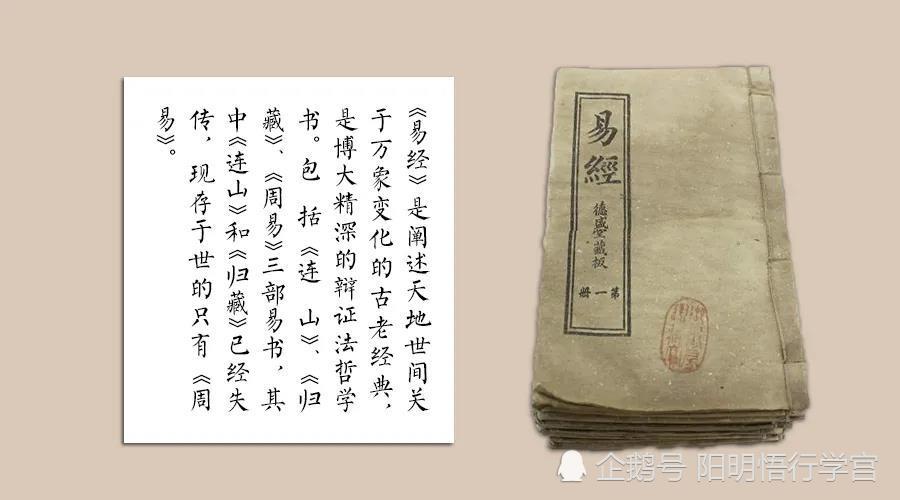 《易经》是阐述天地世间关
于万象变化的古老经典，
是博大精深的辩证法哲学
书。包 括《连 山》、《归
藏》、《周易》三部易书，其
中《连山》和《归藏》已经失
传，现存于世的只有《周
易》。
易經
德盛堂藏板
第一册
企鹅号 阳明悟行学宫